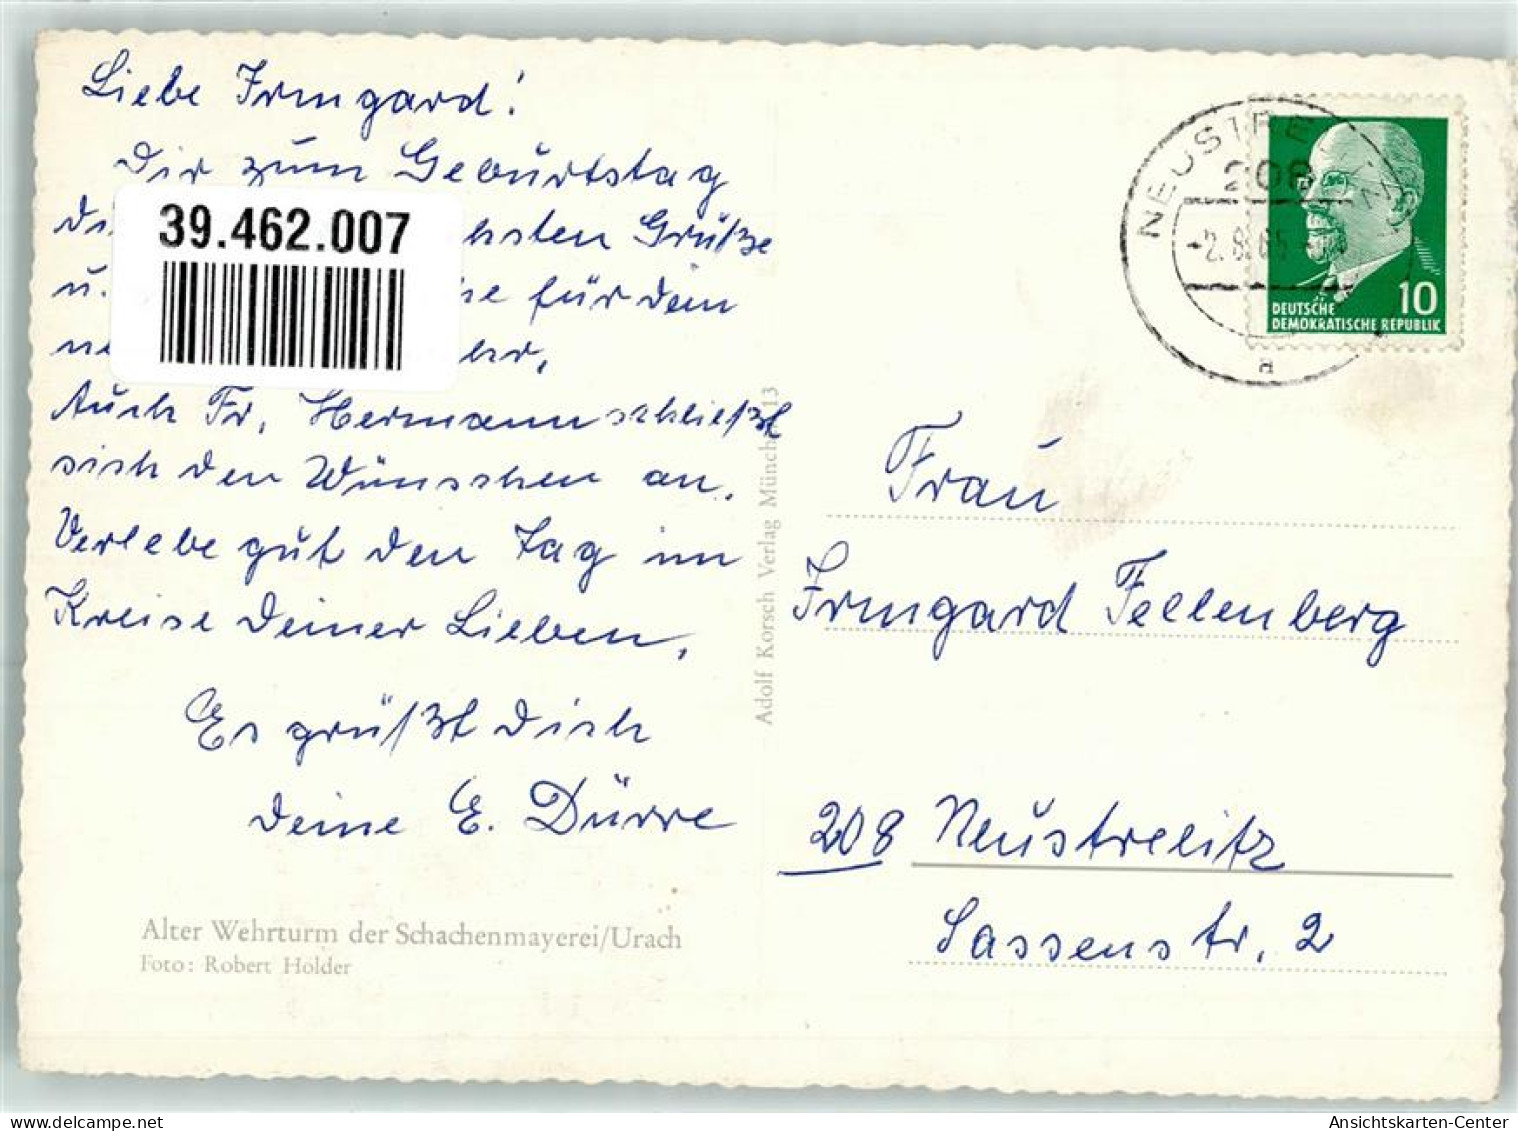 Liebe Irmgard!
Dir zum Geburtstag
39.462.007
Grüße
u. für dein
Auch Fr. Hermann schließt
sich den Wünschen an.
Verlebe gut den Tag im
Kreise Deiner Lieben.
Es grüßt Dich
Deine E. Dürre
Alter Wehrturm der Schachenmayerei/Urach
Foto: Robert Holder
Adolf Korsch Verlag München 13
208
-2.8.65
a
DEUTSCHE
DEMOKRATISCHE REPUBLIK
10
Frau
Irmgard Fellenberg
208 Neustrelitz
Sassenstr. 2
delcampe.net
Ansichtskarten-Center